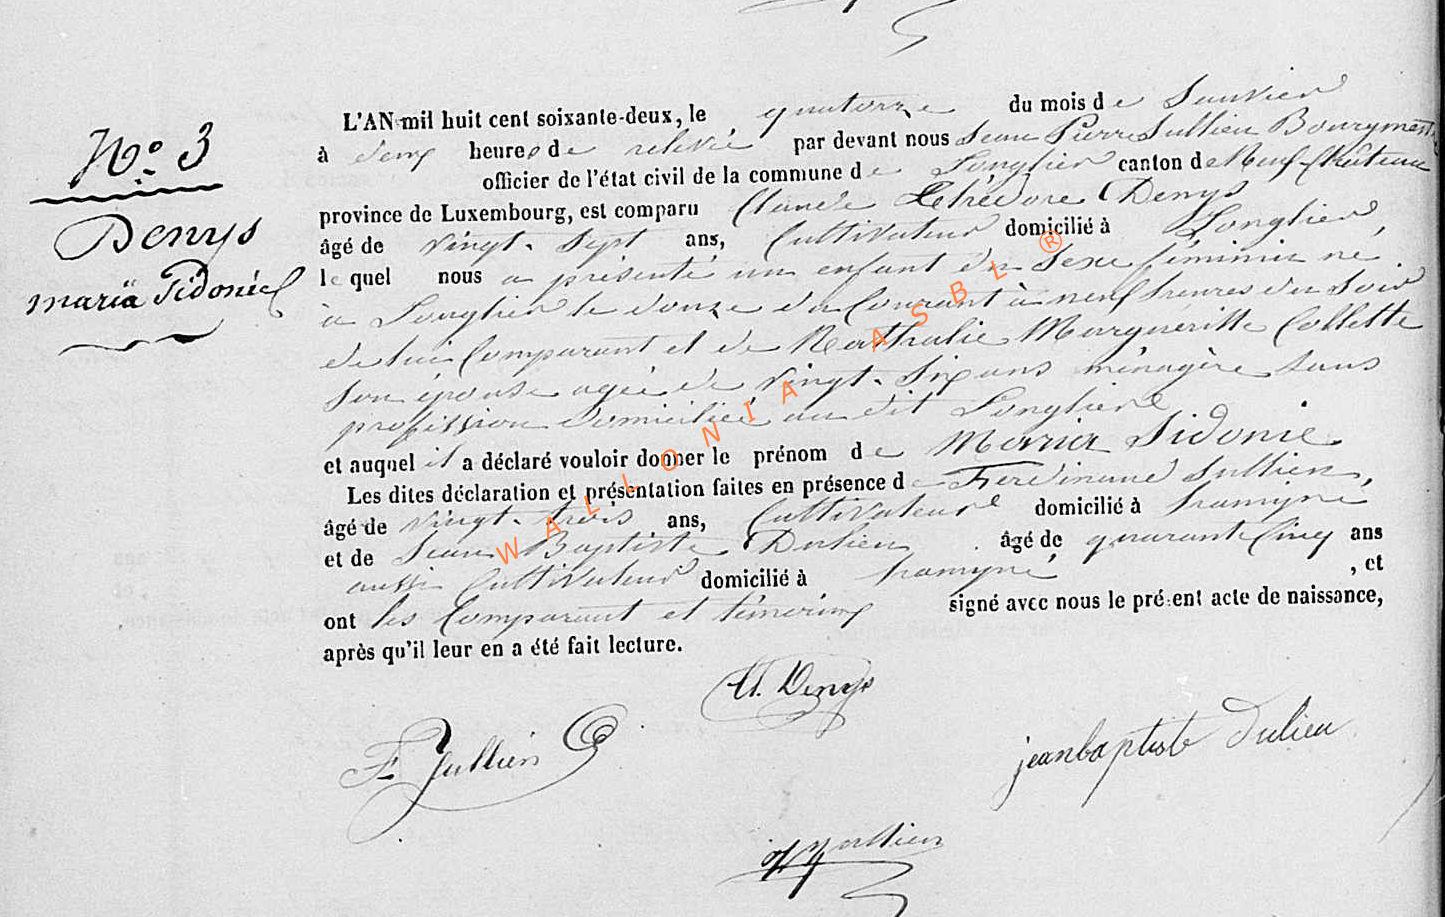 N° 3
Denys
maria Sidonie
L'AN mil huit cent soixante-deux, le quatorze du mois de Janvier
à deux heures de relevé par devant nous Jean Pierre Jullien Bourgmestre
officier de l'état civil de la commune de Longlier canton de Neufchâteau
province de Luxembourg, est comparu Claude Théodore Denys
âgé de vingt-sept ans, Cultivateur domicilié à Longlier,
lequel nous a présenté un enfant du Sexe féminin né
à Longlier le douze du Courant à neuf heures du Soir
de lui Comparant et de Nathalie Margueritte Collette
Son épouse agée de vingt-six ans ménagère sans
profission domiciliée au dit Longlier
et auquel il a déclaré vouloir donner le prénom de Maria Sidonie
Les dites déclaration et présentation faites en présence de Ferdinand Jullien,
âgé de vingt-trois ans, Cultivateur domicilié à
et de Jean Baptiste Dulieu âgé de quarante Cinq ans
aussi Cultivateur domicilié à , et
ont les Comparant et témoins signé avec nous le présent acte de naissance,
après qu'il leur en a été fait lecture.
Denys
F. Jullien
jeanbaptiste dulieu
Jullien
WALLONIA ASBL ®